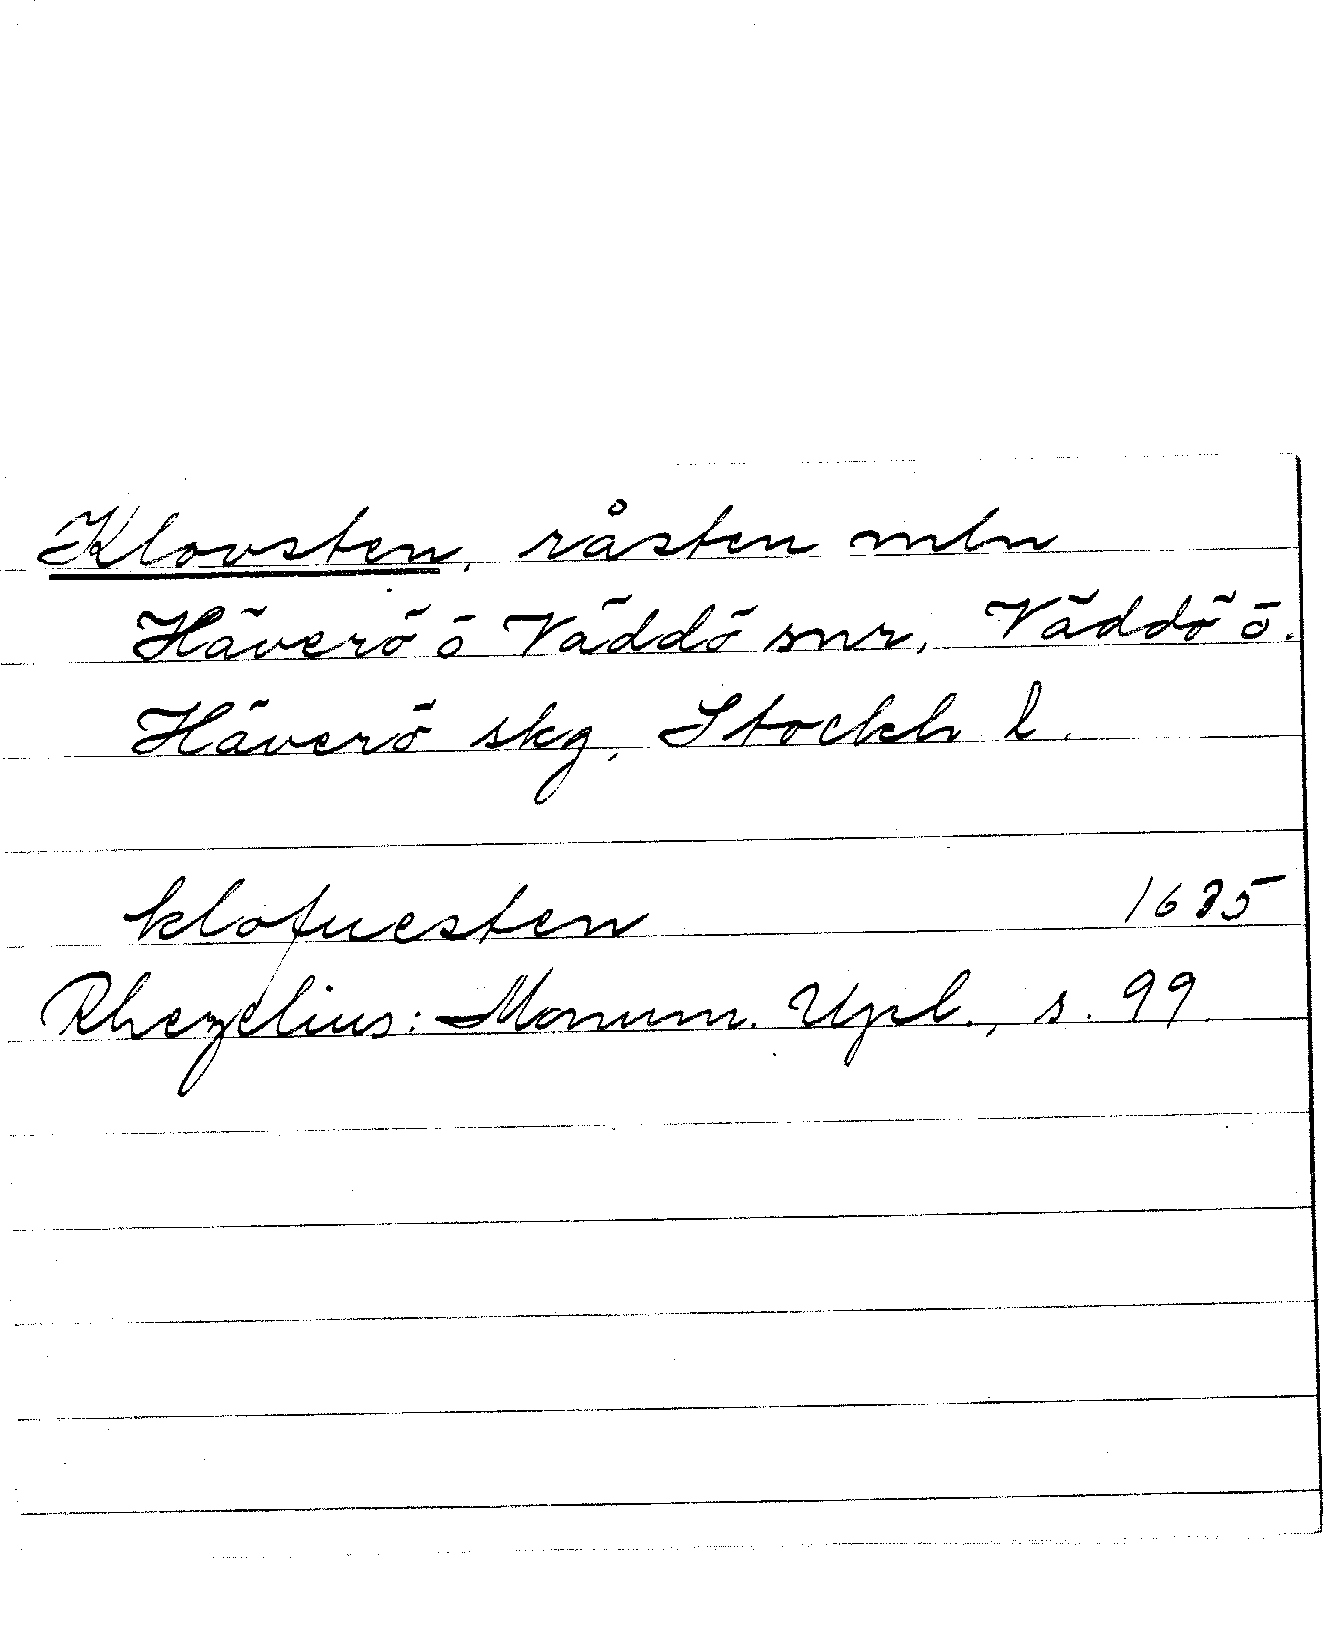 Klovsten, råsten mln
Häverö ö Väddö snr, Väddö ö.
Häverö skg, Stockh l.
klofuesten 1635
Rhezelius: Monum. Upl., s. 99